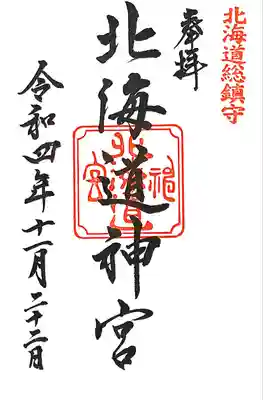 北海道総鎮守
奉拝
北海道神宮
令和四年十一月二十二日